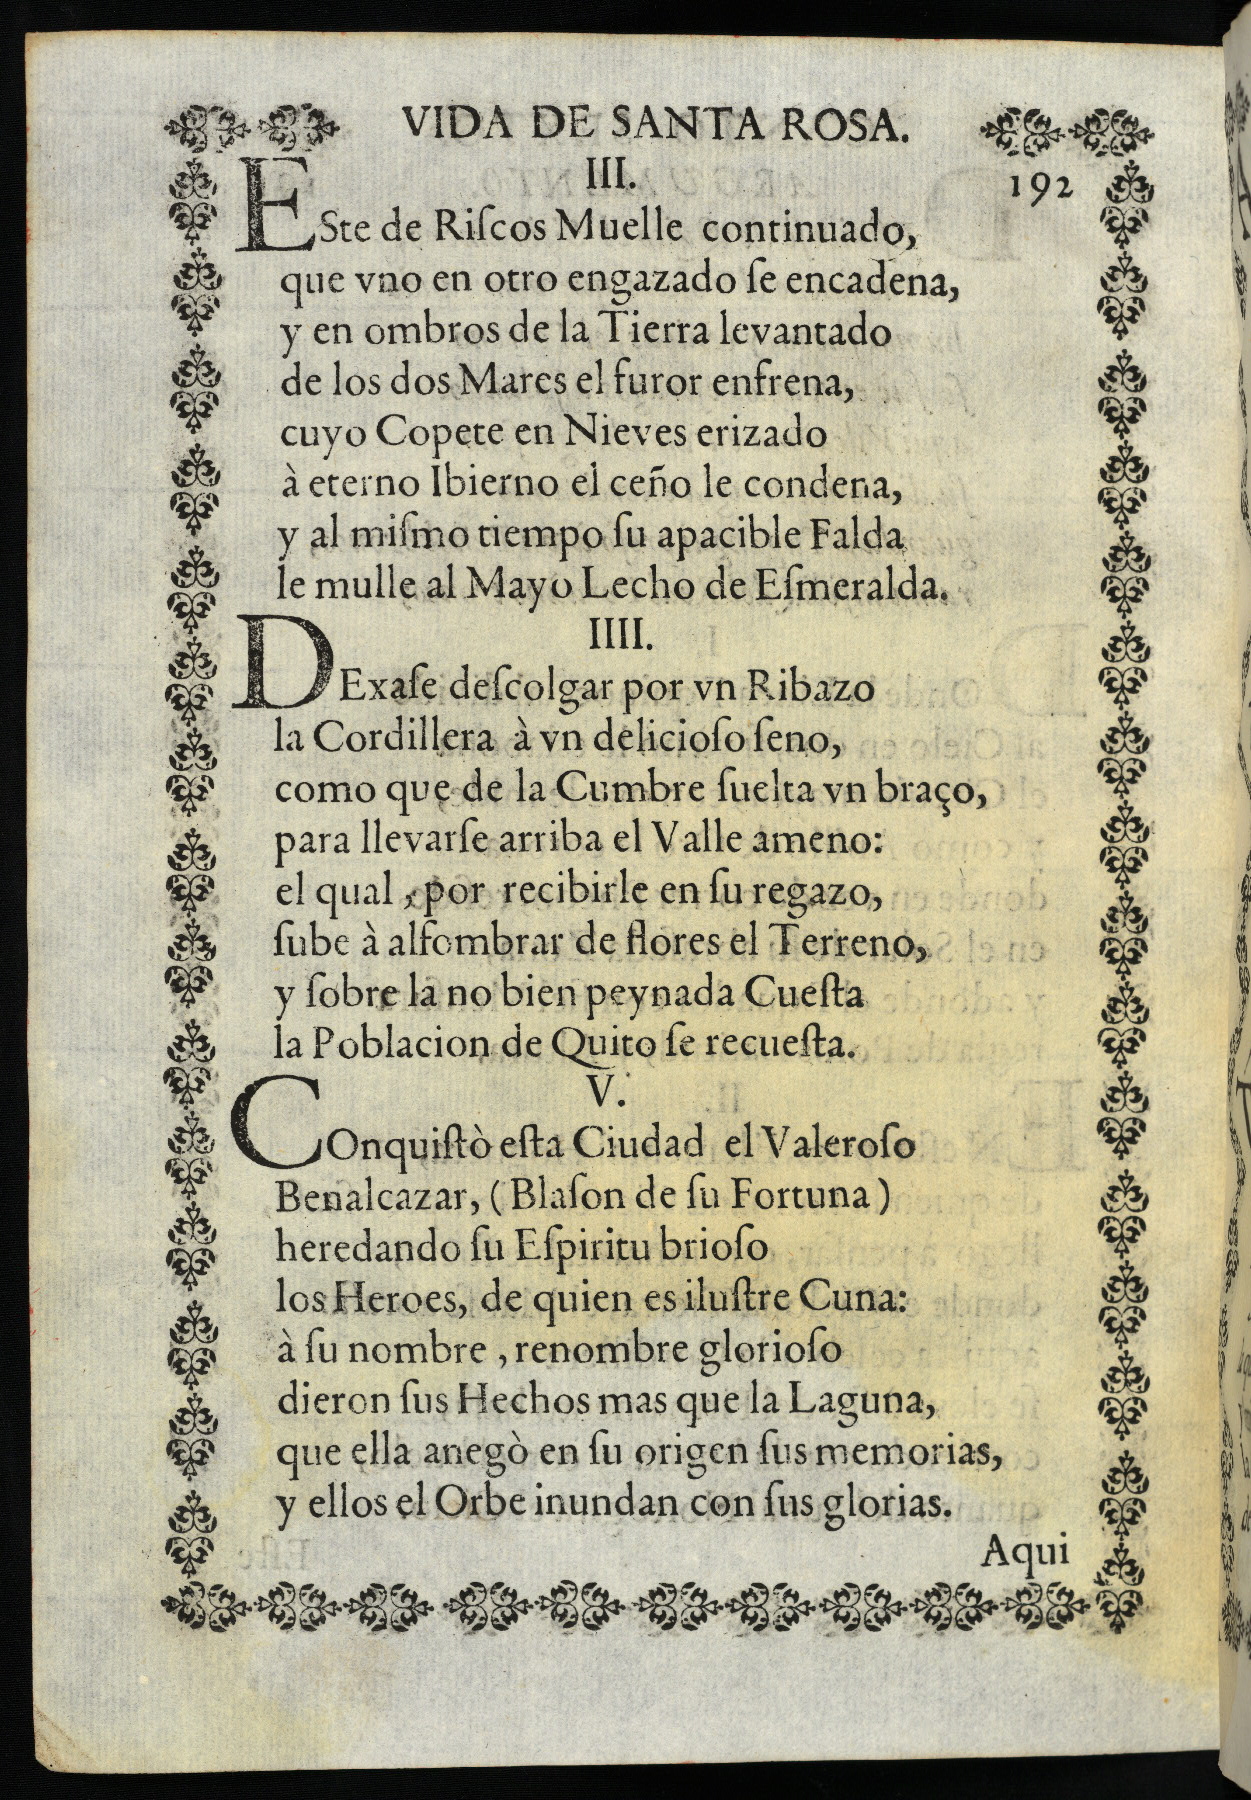 VIDA DE SANTA ROSA.
III.
192
ESte de Riſcos Muelle continuado,
que vno en otro engazado ſe encadena,
y en ombros de la Tierra levantado
de los dos Mares el furor enfrena,
cuyo Copete en Nieves erizado
à eterno Ibierno el ceño le condena,
y al miſmo tiempo ſu apacible Falda
le mulle al Mayo Lecho de Eſmeralda.
IIII.
DExaſe deſcolgar por vn Ribazo
la Cordillera à vn delicioſo ſeno,
como que de la Cumbre ſuelta vn braço,
para llevarſe arriba el Valle ameno:
el qual, por recibirle en ſu regazo,
ſube à alfombrar de flores el Terreno,
y ſobre la no bien peynada Cueſta
la Poblacion de Quito ſe recueſta.
V.
COnquiſtò eſta Ciudad el Valeroſo
Benalcazar, (Blaſon de ſu Fortuna)
heredando ſu Eſpiritu brioſo
los Heroes, de quien es iluſtre Cuna:
à ſu nombre, renombre glorioſo
dieron ſus Hechos mas que la Laguna,
que ella anegò en ſu origen ſus memorias,
y ellos el Orbe inundan con ſus glorias.
Aqui